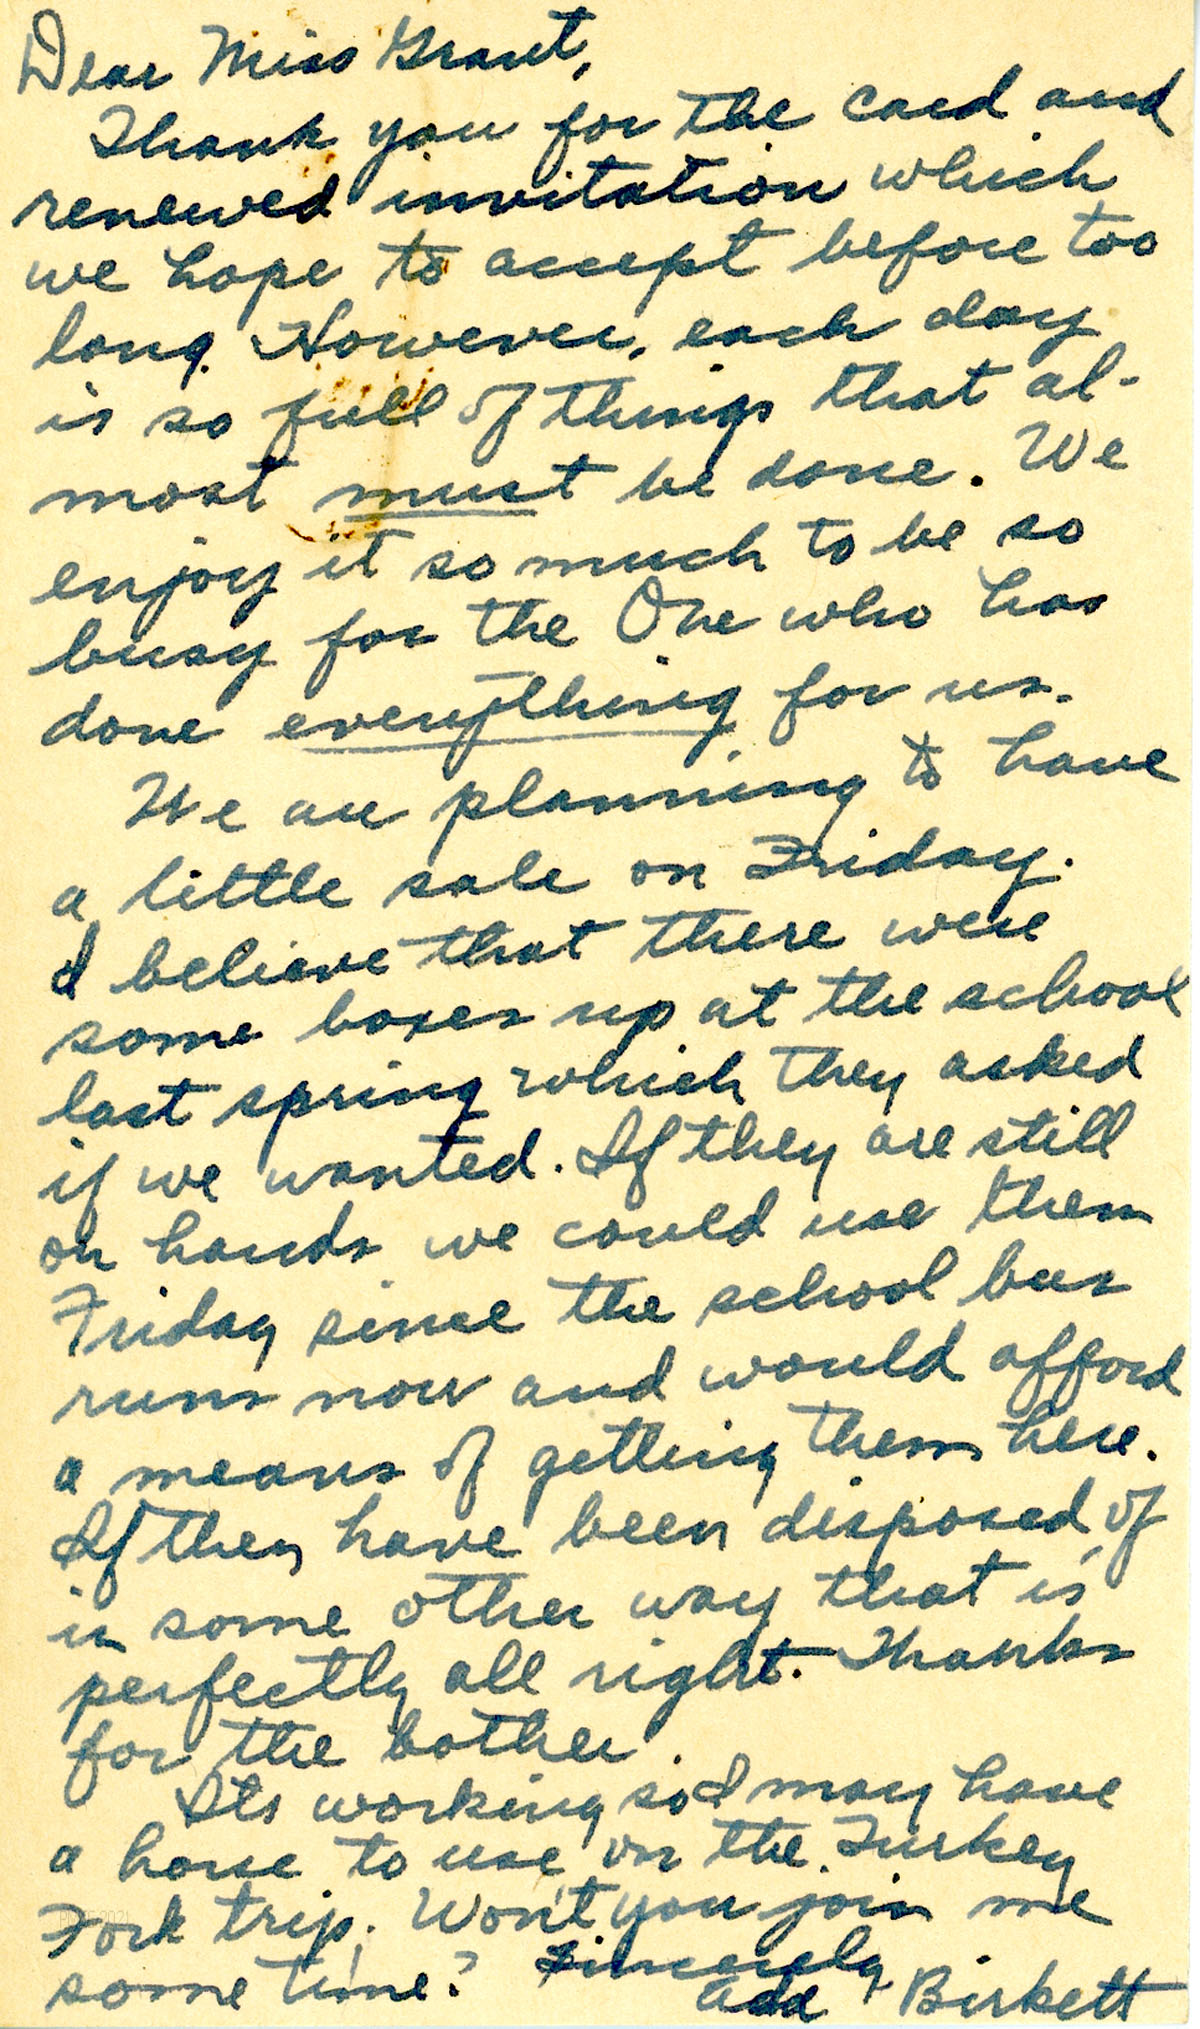 Dear Miss Grant,
Thank you for the card and
renewed invitation which
we hope to accept before too
long. However, each day
is so full of things that al-
most must be done. We
enjoy it so much to be so
busy for the One who has
done everything for us.
We are planning to have
a little sale on Friday.
I believe that there were
some boxes up at the school
last spring which they asked
if we wanted. If they are still
on hands we could use them
Friday since the school bus
runs now and would afford
a means of getting them here.
If they have been disposed of
in some other way that is
perfectly all right. Thanks
for the bother.
Its working so I may have
a horse to use on the Turkey
Fork trip. Won't you join me
some time? Sincerely,
Birkett